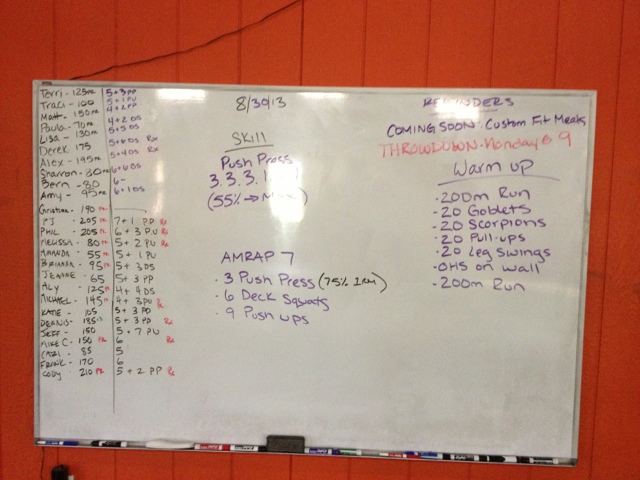 Terri - 125 PR 5+3 PP
Traci - 100 5+1 PU
Matt - 150 PR 4+2 PP
Paula - 70 PR 4+2 DS
Lisa - 130 PR 5+5 DS
Derek 175 5+6 DS Rx
Alex - 195 PR 5+4 DS Rx
Sharron - 80 PR 6+6 DS
Bern - 80 6-
Amy - 95 PR 6+1 DS
Christian - 190 PR
PJ - 205 PR 7+1 PP Rx
PHIL - 205 PR 6+3 PU Rx
MELISSA - 80 PR 5+2 PU Rx
AMANDA - 55 PR 5+1 PU
BRIANNA - 95 PR 5+3 DS
JEANNE - 65 5+3 PP
ALY - 125 PR 4+4 DS
MICHAEL - 145 PR 4+3 PU Rx
KATIE - 105 5+3 PD
DENNIS - 185 5+3 PD Rx
JEFF - 150 5+7 PU
MIKE C. - 150 PR 6 Rx
CARI - 85 5
FRANK - 170 6
CODY - 210 PR 5+2 PP Rx
8/30/13
Skill
Push Press
3, 3, 3, 1,
(55% → Max)
AMRAP 7
· 3 Push Press (75% 1RM)
· 6 Deck Squats
· 9 Push ups
REMINDERS
COMING SOON: Custom Fit Meals
THROWDOWN - Monday @ 9
Warm up
· 200m Run
· 20 Goblets
· 20 Scorpions
· 20 Pull-ups
· 20 Leg Swings
· OHS on wall
· 200m Run